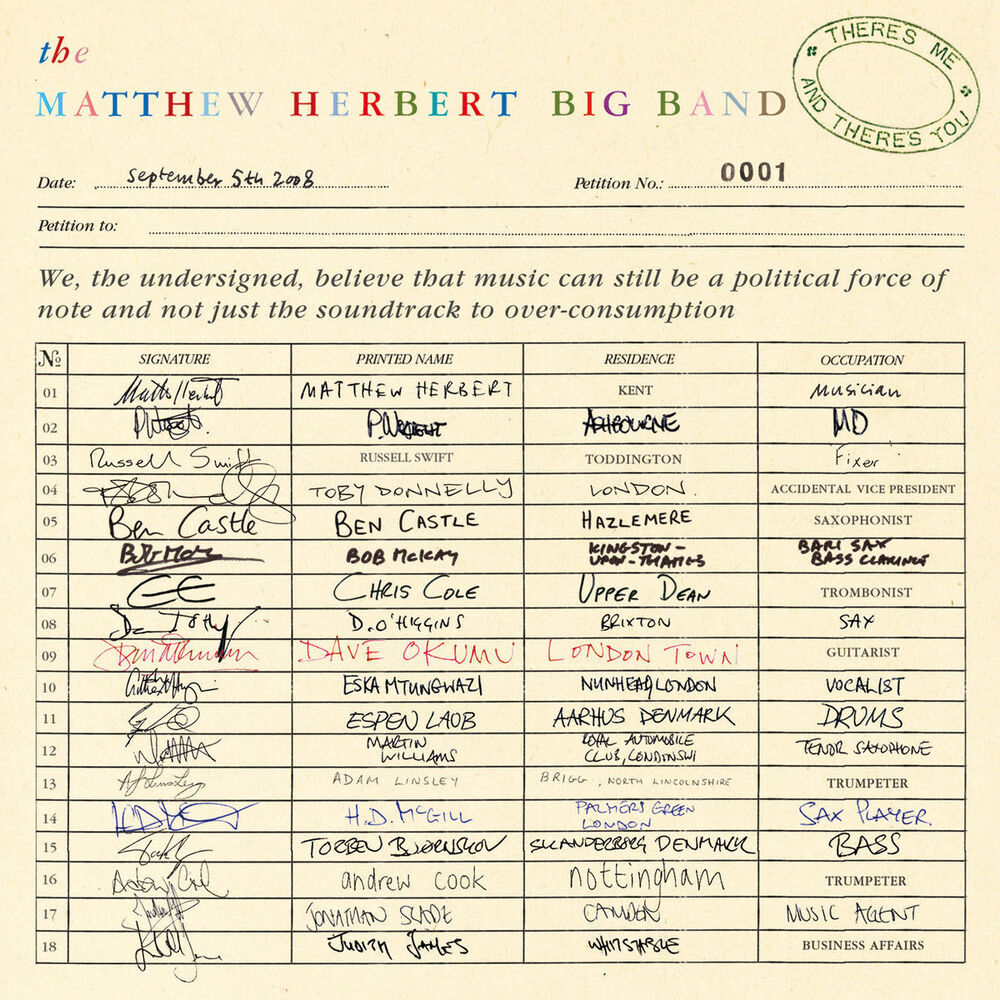 the
MATTHEW HERBERT BIG BAND
THERE'S ME
AND THERE'S YOU
Date: September 5th 2008
Petition No.: 0001
Petition to:
We, the undersigned, believe that music can still be a political force of
note and not just the soundtrack to over-consumption
№ SIGNATURE PRINTED NAME RESIDENCE OCCUPATION
01 MATTHEW HERBERT KENT Musician
02 P. ASHBOURNE MD
03 Russell Swift RUSSELL SWIFT TODDINGTON Fixer
04 TOBY DONNELLY LONDON. ACCIDENTAL VICE PRESIDENT
05 Ben Castle BEN CASTLE HAZLEMERE SAXOPHONIST
06 BOB McKAY KINGSTON-
UPON-THAMES BARI SAX
BASS CLARINET
07 CHRIS COLE UPPER DEAN TROMBONIST
08 D. O'HIGGINS BRIXTON SAX
09 DAVE OKUMU LONDON TOWN GUITARIST
10 ESKA MTUNGWAZI NUNHEAD, LONDON VOCALIST
11 ESPEN LAUB AARHUS DENMARK DRUMS
12 MARTIN
WILLIAMS ROYAL AUTOMOBILE
CLUB, LONDON SW1 TENOR SAXOPHONE
13 ADAM LINSLEY BRIGG, NORTH LINCOLNSHIRE TRUMPETER
14 H.D. McGILL PALMERS GREEN
LONDON SAX PLAYER.
15 TORBEN BJØRNSKOV SKANDERBORG DENMARK BASS
16 andrew cook nottingham TRUMPETER
17 JONATHAN SLADE CAMDEN. MUSIC AGENT
18 JUDITH JAMES WHITSTABLE BUSINESS AFFAIRS